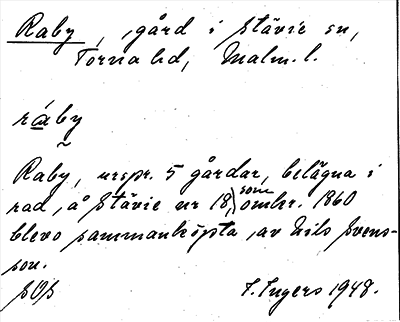 Raby, gård i Stävie sn,
Torna hd, Malm. l.
råby
Raby, urspr. 5 gårdar, belägna i
rad, å Stävie nr 18, som omkr. 1860
blevo sammanköpta, av Nils Svens-
son.
SOS
I. Ingers 1948.